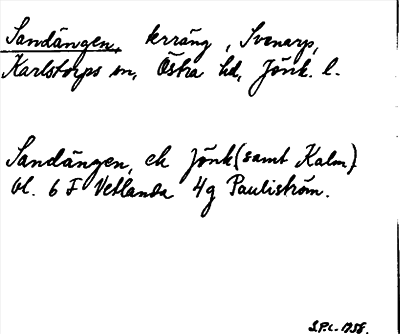 Sandängen, terräng, Svenarp,
Karlstorps sn, Östra hd, Jönk. l.
Sandängen, ek Jönk (samt Kalm)
bl. 6 F Vetlanda 4g Pauliström.
S.P.L. 1758.